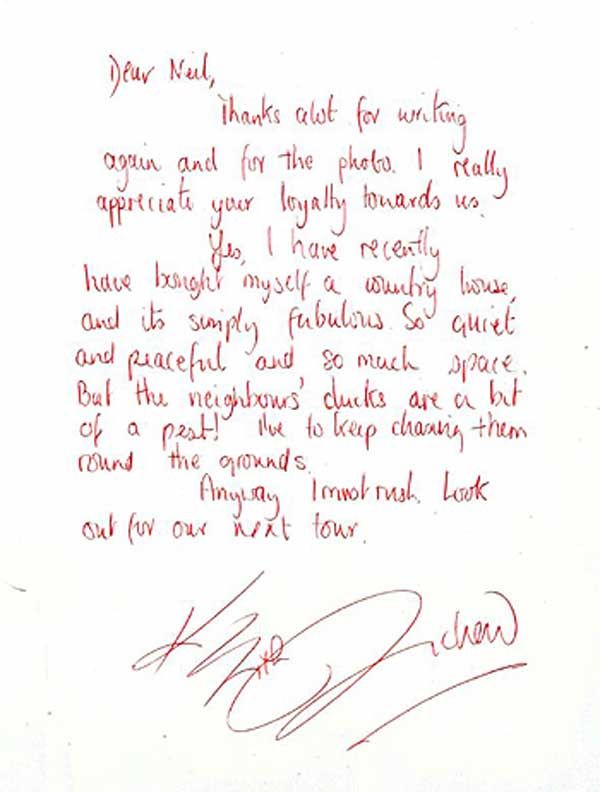 Dear Neil,
Thanks alot for writing
again and for the photo. I really
appreciate your loyalty towards us.
Yes, I have recently
have bought myself a country house,
and its simply fabulous. So quiet
and peaceful and so much space.
But the neighbours' ducks are a bit
of a pest! I've to keep chasing them
round the grounds.
Anyway I must rush. Look
out for our next tour.
Keith Richard